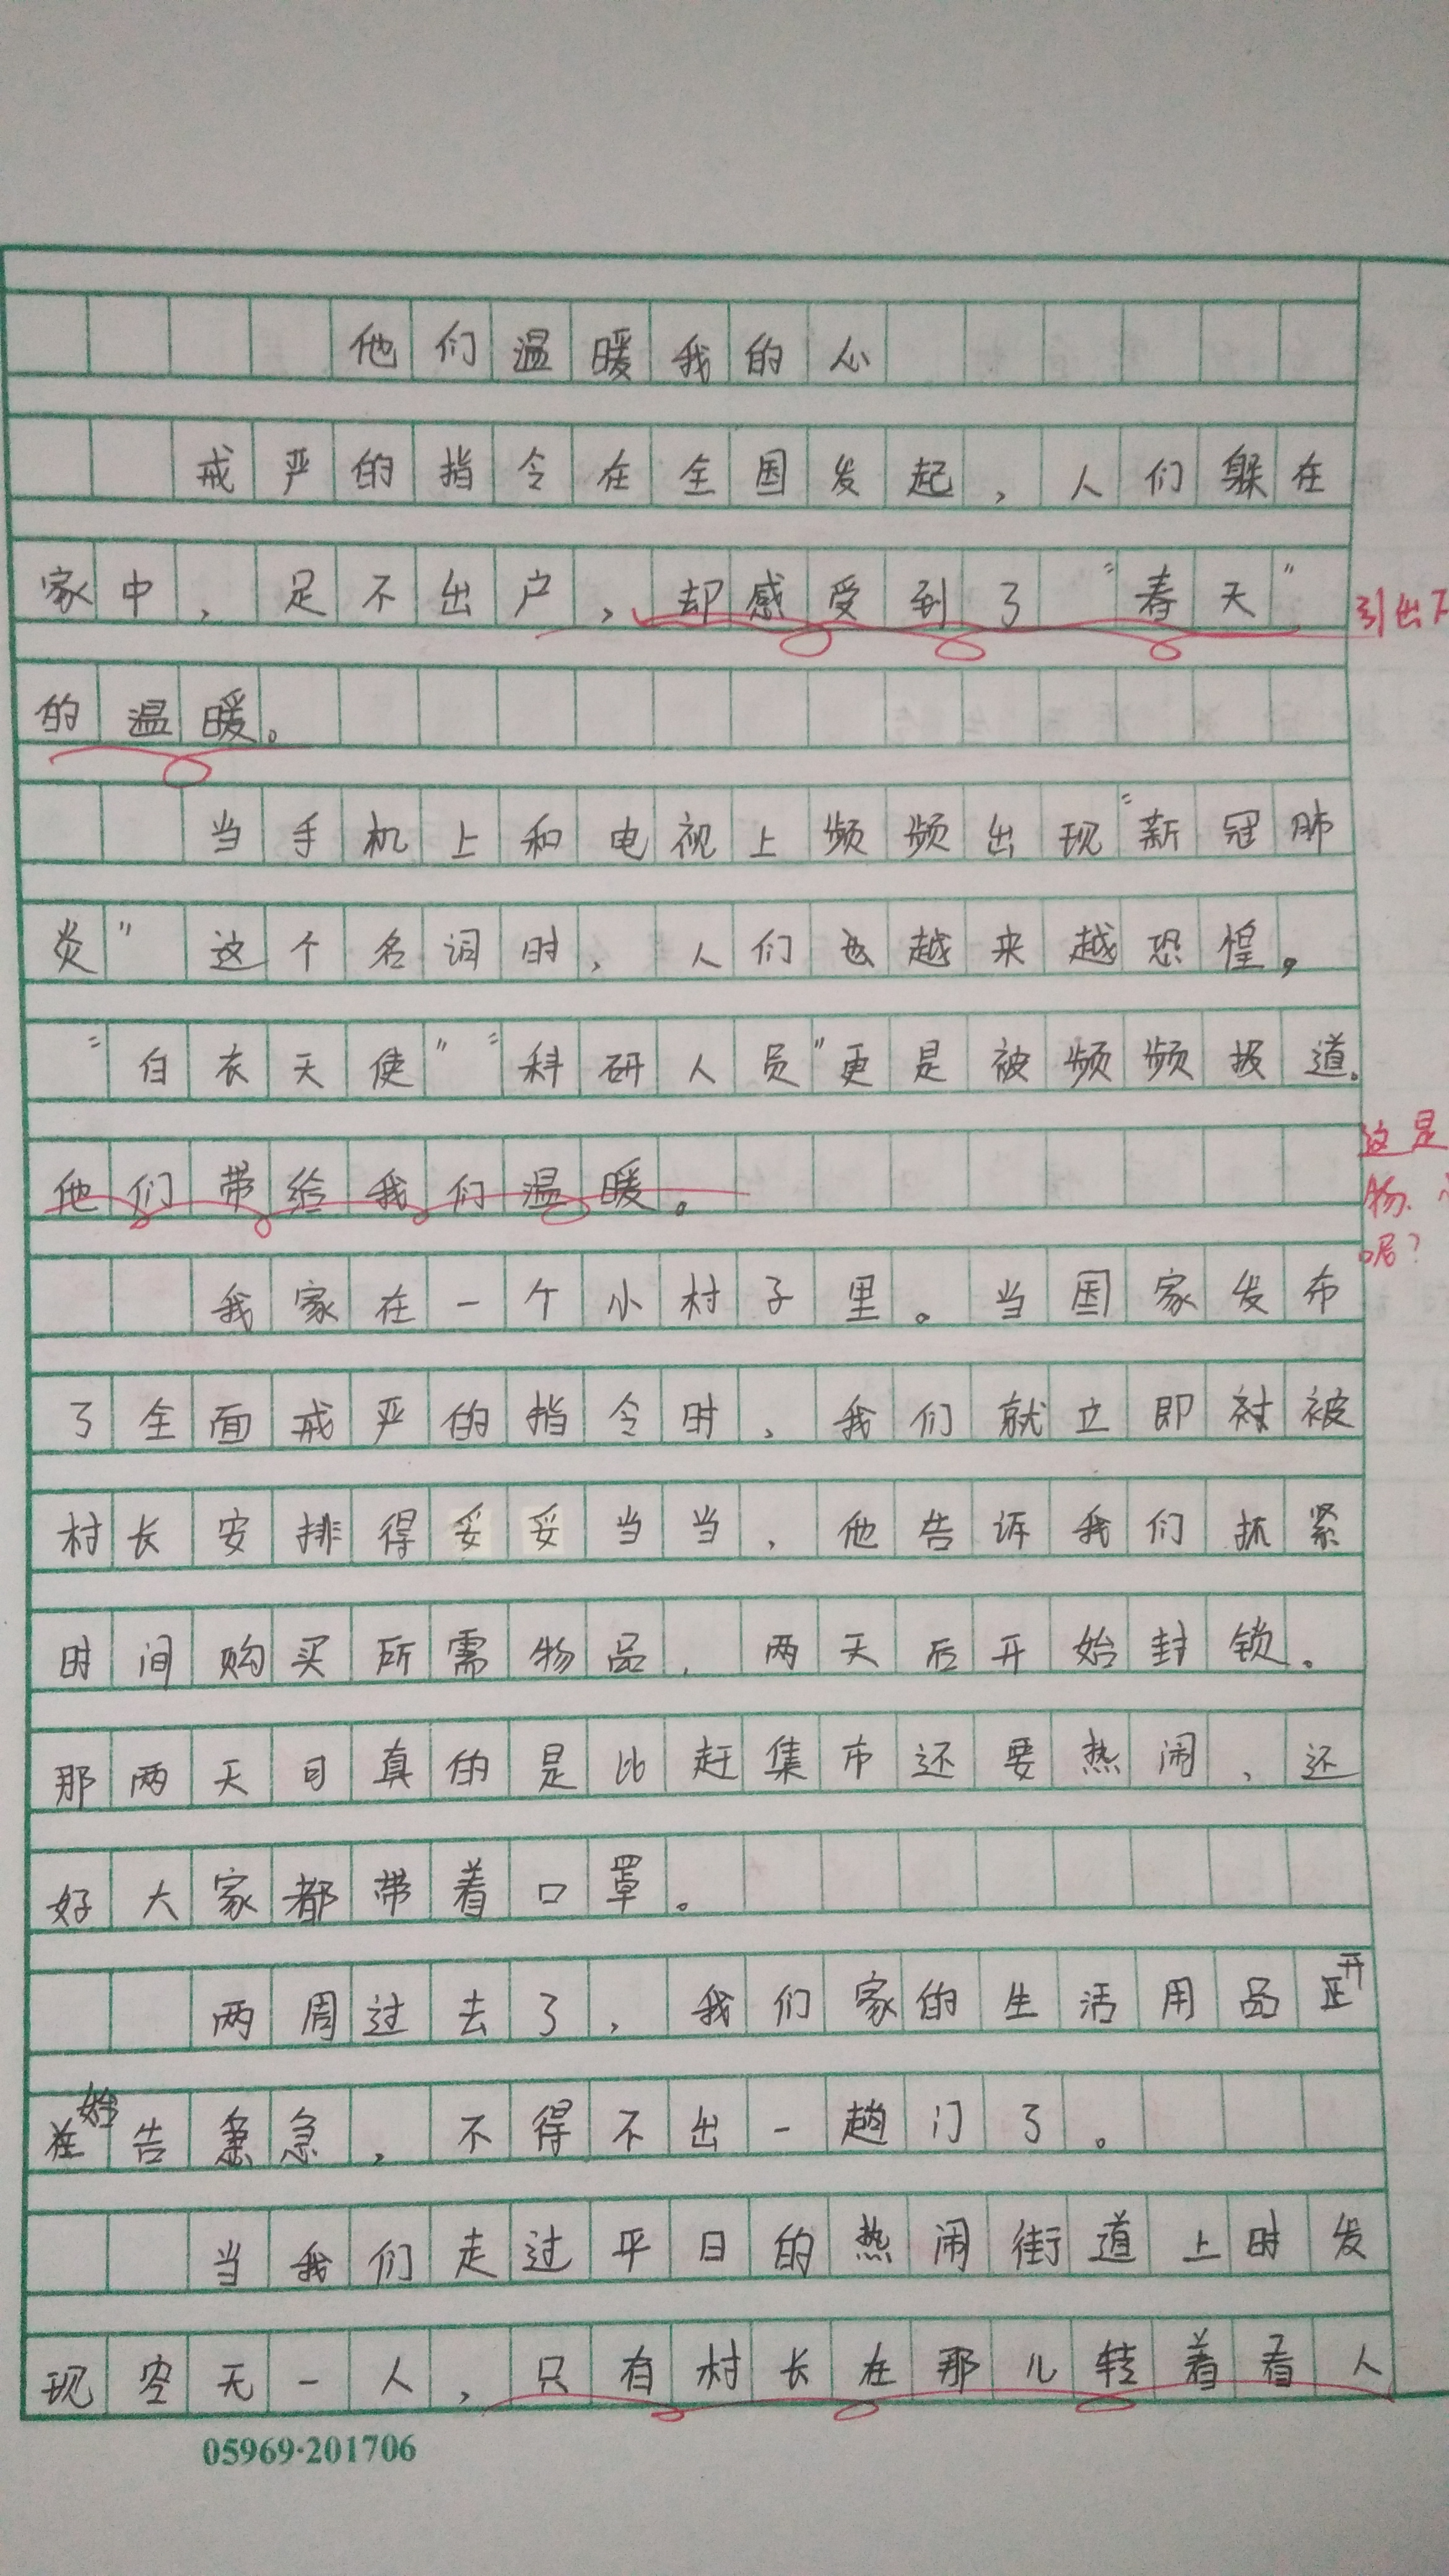 他们温暖我的心
戒严的指令在全国发起，人们躲在
家中，足不出户，却感受到了“春天”
引出
的温暖。
当手机上和电视上频频出现“新冠肺
炎”这个名词时，人们也越来越恐惶，
“白衣天使”“科研人员”更是被频频报道。
这是
他们带给我们温暖。
物、
呢？
我家在一个小村子里。当国家发布
了全面戒严的指令时，我们就立即被
村长安排得妥妥当当，他告诉我们抓紧
时间购买所需物品，两天后开始封锁。
那两天可真的是比赶集市还要热闹，还
好大家都带着口罩。
两周过去了，我们家的生活用品开
始告急，不得不出一趟门了。
当我们走过平日的热闹街道上时发
现空无一人，只有村长在那儿转着看人
05969·201706